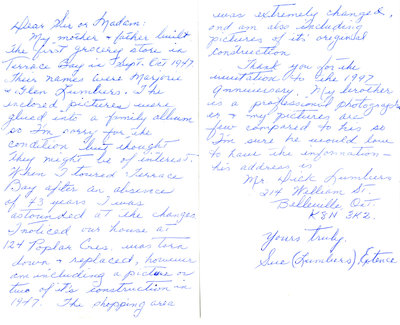 Dear Sir or Madam:
My mother & father built
the first grocery store in
Terrace Bay in Sept. Oct 1947
Their names were Marjorie
& Glen Lumbers. The
enclosed pictures were
glued into a family album
so I'm sorry for the
condition but thought
they might be of interest.
When I toured Terrace
Bay after an absence
of 43 years I was
astounded at the changes
I noticed our house at
124 Poplar Cres. was torn
down & replaced, however
am including a picture or
two of it's construction in
1947. The shopping area
was extremely changed,
and am also including
pictures of it's original
construction
Thank you for the
invitation to the 1997
Anniversary. My brother
is a professional photograph
er & my pictures are
few compared to his so
I'm sure he would love
to have the information -
his address is
Mr Dick Lumbers
214 William St.
Belleville Ont.
K8N 3K2.
Yours truly,
Sue (Lumbers) Extence